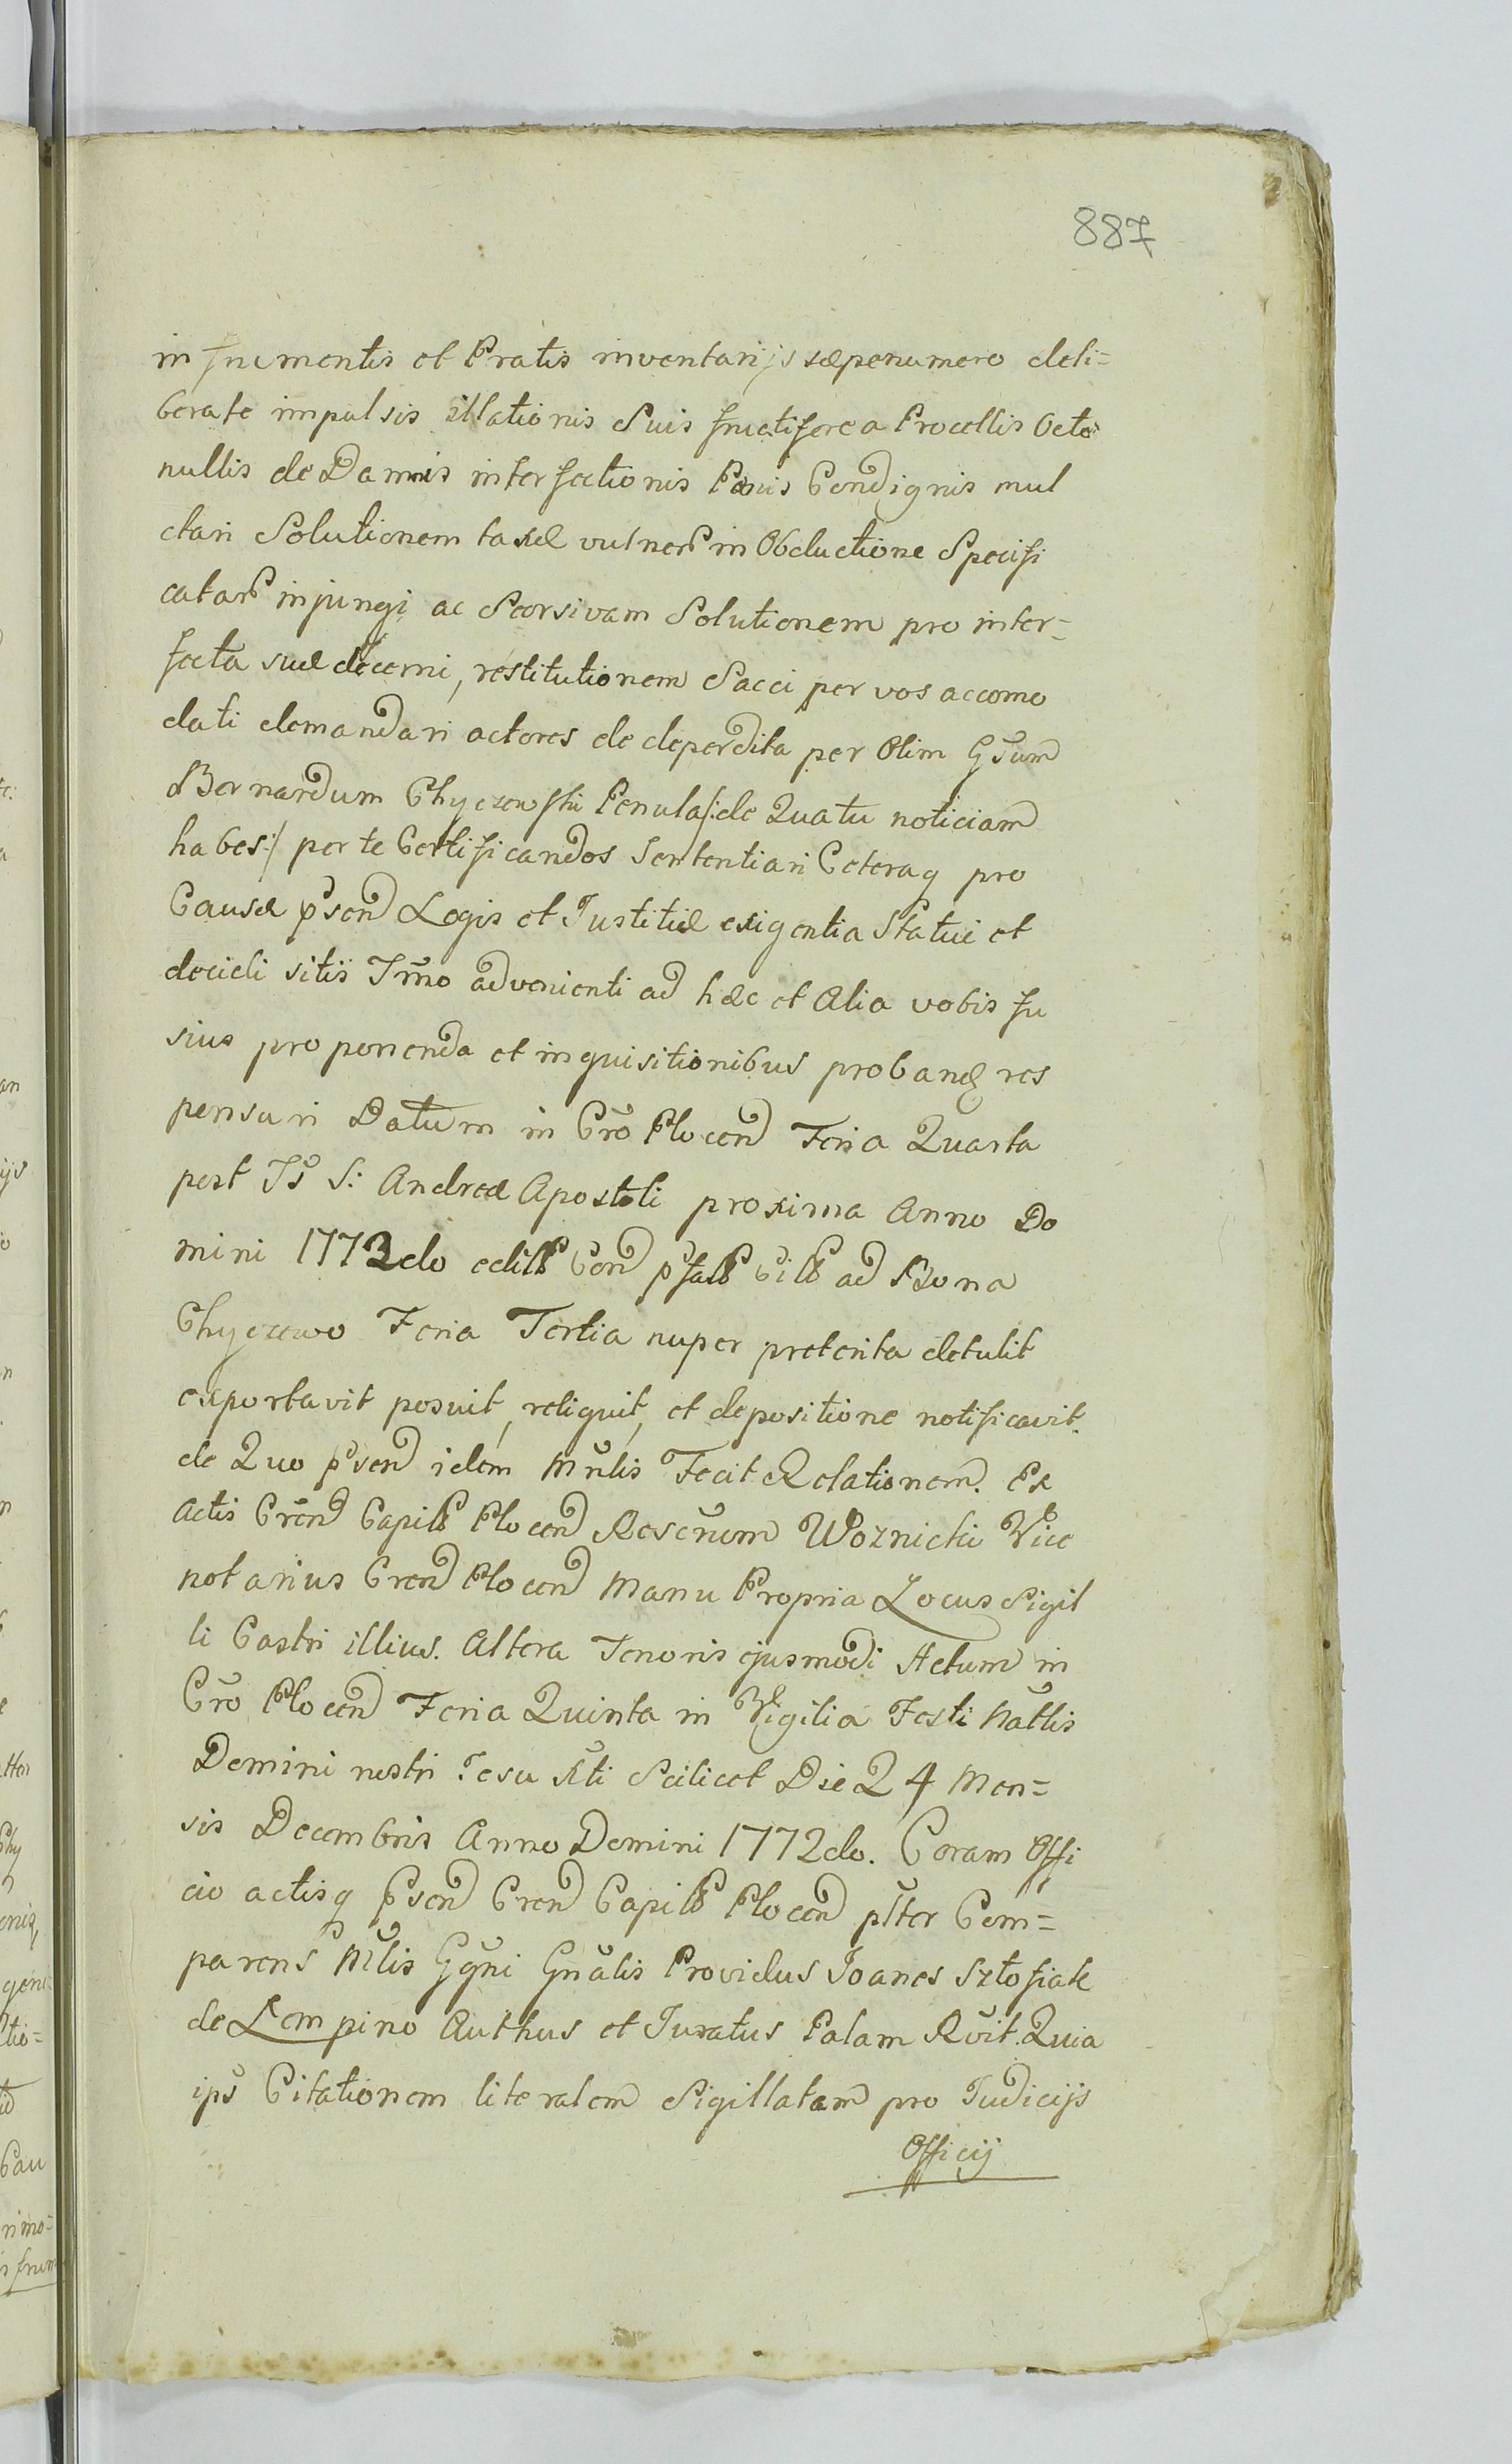 887
in frumentis et Pratis inventarijs sæpenumero deli=
berate impulsis illationis Suis fructifere a Procellis Octo
nullis de Damnis interfectionis Pœnis Condignis mul
ctari Solutionem taxæ vulner in Obductione Specifi
catar injungi ac Seorsivam Solutionem pro inter=
fecta sue decerni, restitutionem Sacci per vos accomo
dati demandari actores de deperdita per Olim GSum
Bernardum Chyczewski Penula/: de Qua tu noticiam
habes:/ per te Certificandos Sententiari Ceteraq pro
Causæ pśen Legis et Justitiæ exigentia Statui et
decidi sitis Tm̃no advenienti ad hæc et Alia vobis fu
sius proponenda et inquisitionibus proband res
pensuri Datum in Cr̃o Plocen Feria Quarta
post Fs̃ S: Andreæ Apostoli proxima Anno Do
mini 1772do edit Cen pfat Cit ad Bona
Chyczewo Feria Tertia nuper preterita detulit
exportavit posuit, reliquit, et depositione notificavit.
de Quo pśen idem Mn̆lis Fecit Relationem. Ex
Actis Cren̆ Capit Plocen Resc̃rum Woznicki Vice
notarius Cren Plocen Manu Propria Locus Sigil
li Castri illius. Altera Tenoris ejusmodi Actum in
Cr̃o Plocen Feria Quinta in Vigilia Festi Nat̃lis
Domini nostri Jesu Xt̃i Scilicet Die 24 Men=
sis Decembris Anno Domini 1772do. Coram Offi
cio actisq Pśen Cren Capit Plocen pl̃ter Com=
parens Ml̃is Ggn̆i Gn̆alis Providus Joanes Sztofiak
de Lempino Authus et Juratus Palam Rv̆it. Quia
ips̆ Citationem literalem Sigillatam pro Judicijs
Officij